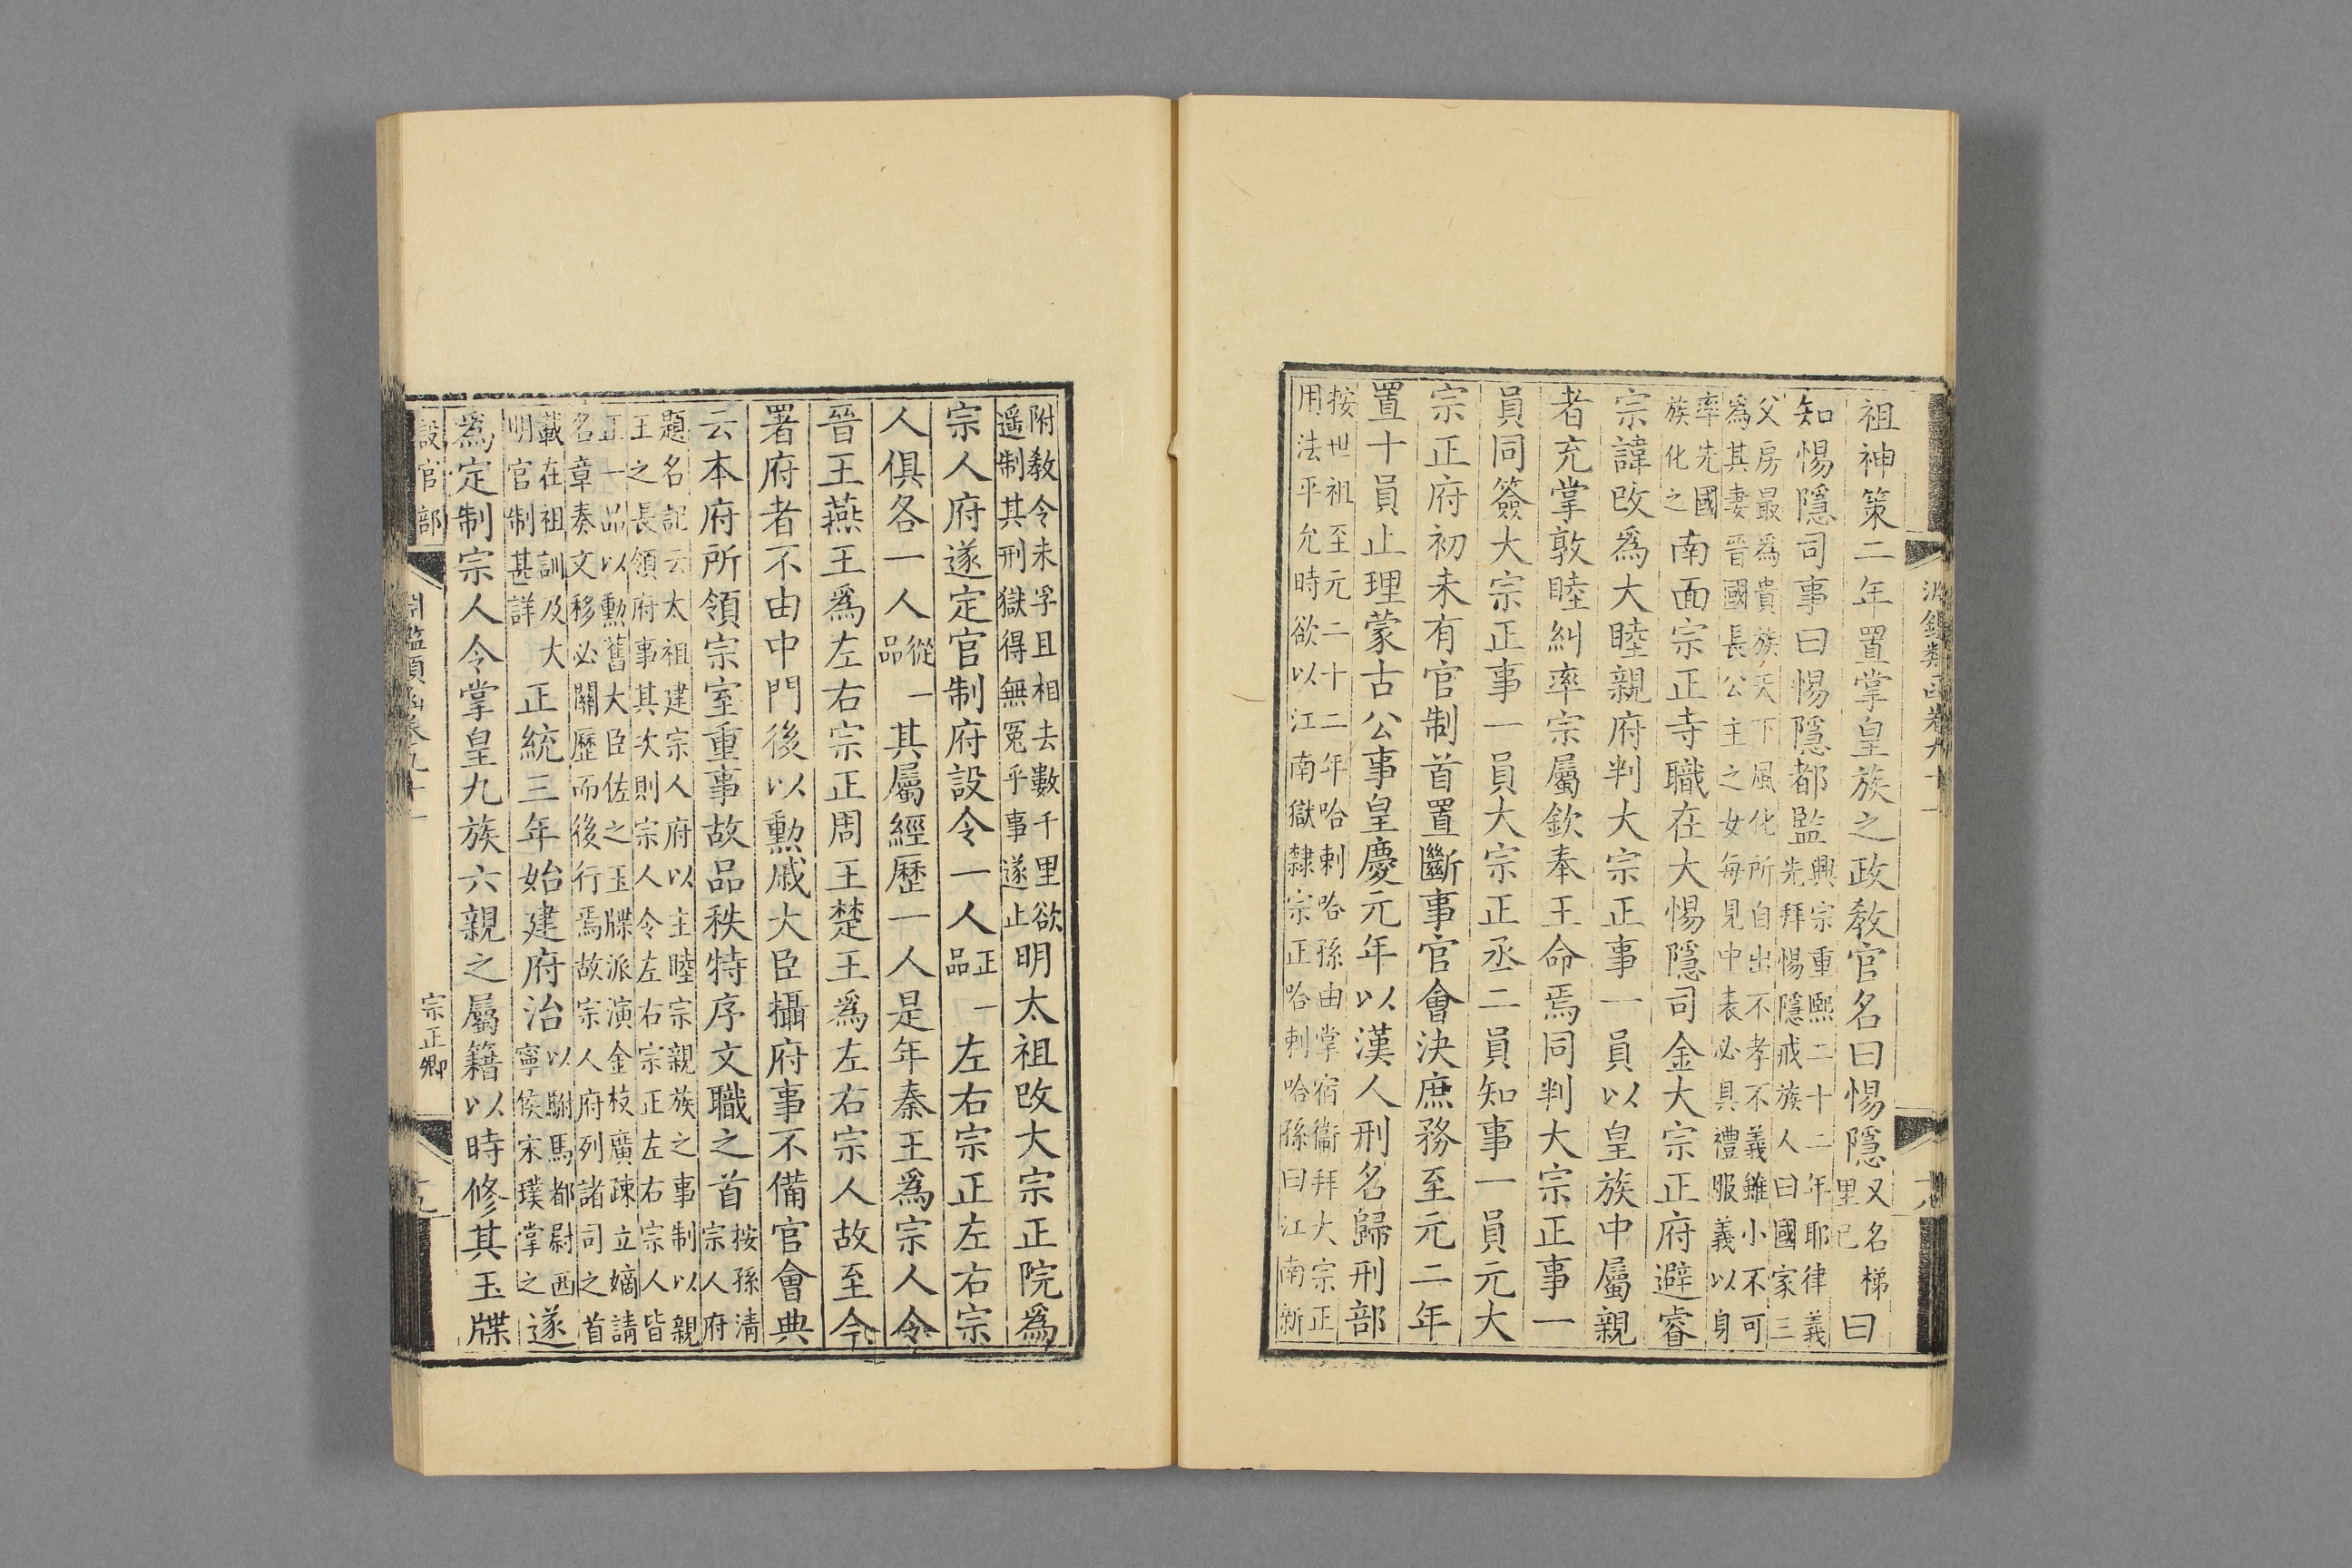 淵鑑類函卷九十一
祖神策二年置掌皇族之政教官名曰惕隱又名梯里已曰
知惕隱司事曰惕隱都監興宗重熙二十二年耶律義先拜惕隱戒族人曰國家三
父房最為貴族天下風化所自出不孝不義雖小不可為其妻晋國長公主之女每見中表必具禮服義以身
率先國族化之南面宗正寺職在大惕隱司金大宗正府避睿
宗諱改為大睦親府判大宗正事一員以皇族中屬親
者充掌敦睦糾率宗屬欽奉王命焉同判大宗正事一
員同簽大宗正事一員大宗正丞二員知事一員元大
宗正府初未有官制首置斷事官會決庶務至元二年
置十員止理蒙古公事皇慶元年以漢人刑名歸刑部
按世祖至元二十二年哈剌哈孫由掌宿衞拜大宗正用法平允時欲以江南獄隸宗正哈剌哈孫曰江南新
附教令未孚且相去數千里欲遥制其刑獄得無冤乎事遂止明太祖改大宗正院爲
宗人府遂定官制府設令一人正一品左右宗正左右宗
人俱各一人從一品其屬經歷一人是年秦王爲宗人令
晉王燕王爲左右宗正周王楚王爲左右宗人故至今
署府者不由中門後以勲戚大臣攝府事不備官會典
云本府所領宗室重事故品秩特序文職之首按孫淸宗人府
題名記云太祖建宗人府以主睦宗親族之事制以親王之長領府事其次則宗人令左右宗正左右宗人皆
正一品以勲舊大臣佐之玉牒派演金枝廣疎立嫡請名章奏文移必關歷而後行焉故宗人府列諸司之首
載在祖訓及大明官制甚詳正統三年始建府治以駙馬都尉西寧侯宋璞掌之遂
爲定制宗人令掌皇九族六親之屬籍以時修其玉牒
設官部
淵鑑類函卷九十一
宗正卿
十九